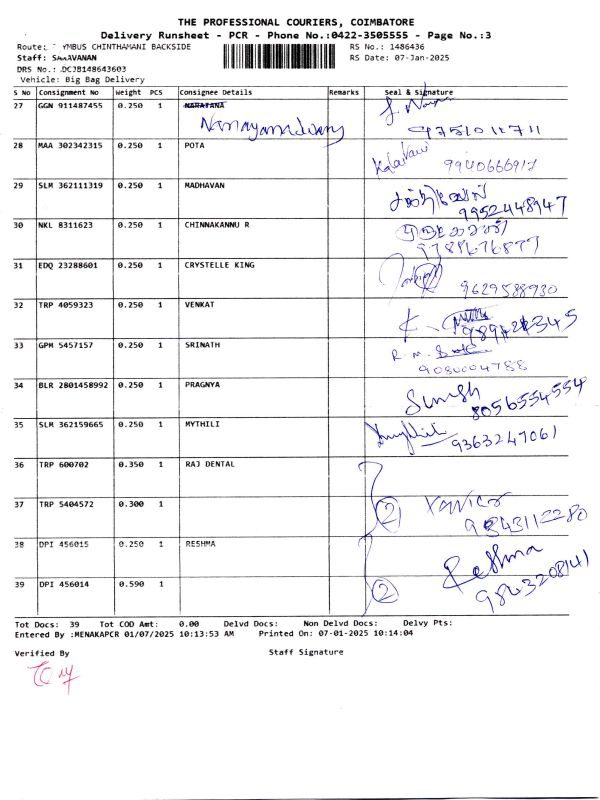 THE PROFESSIONAL COURIERS, COIMBATORE
Delivery Runsheet - PCR - Phone No.:0422-3505555 - Page No.:3
Route: YMBUS CHINTHAMANI BACKSIDE RS No.: 1486436
Staff: SARAVANAN RS Date: 07-Jan-2025
DRS No.: DCJB148643603
Vehicle: Big Bag Delivery
S No Consignment No Weight PCS Consignee Details Remarks Seal & Signature
27 GGN 911487455 0.250 1 NARAYANA
9751011711
28 MAA 302342315 0.250 1 POTA Kalaivani 9940666917
29 SLM 362111319 0.250 1 MADHAVAN 9952448947
30 NKL 8311623 0.250 1 CHINNAKANNU R 9788676877
31 EDQ 23288601 0.250 1 CRYSTELLE KING 9629588930
32 TRP 4059323 0.250 1 VENKAT
33 GPM 5457157 0.250 1 SRINATH R.M. 9080004788
34 BLR 2801458992 0.250 1 PRAGNYA 8056554554
35 SLM 362159665 0.250 1 MYTHILI 9363247061
36 TRP 600702 0.350 1 RAJ DENTAL
37 TRP 5404572 0.300 1 2 Xavier
38 DPI 456015 0.250 1 RESHMA Reshma
39 DPI 456014 0.590 1 2 9843208141
Tot Docs: 39 Tot COD Amt: 0.00 Delvd Docs: Non Delvd Docs: Delvy Pts:
Entered By :MENAKAPCR 01/07/2025 10:13:53 AM Printed On: 07-01-2025 10:14:04
Verified By Staff Signature